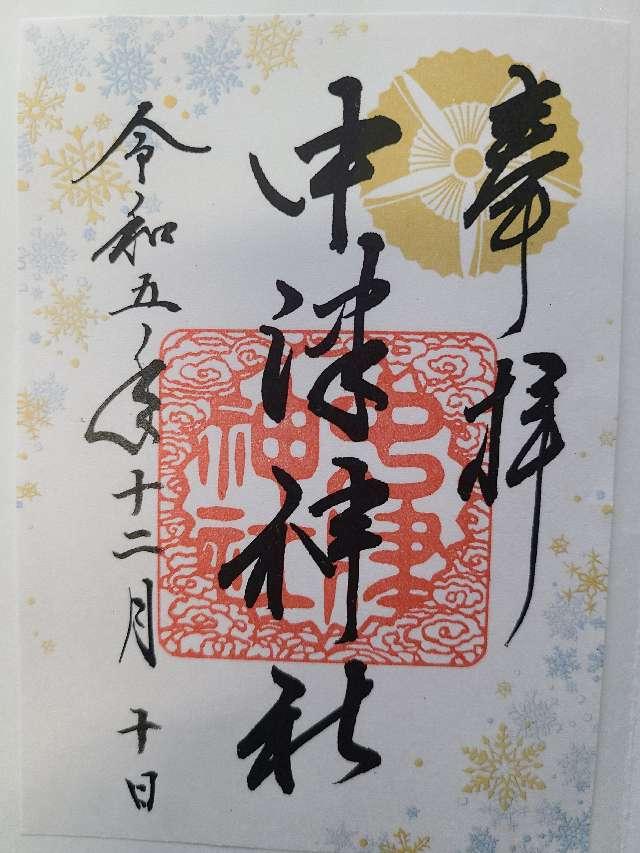 奉拝
中津神社
令和五年十二月十日
津
神社